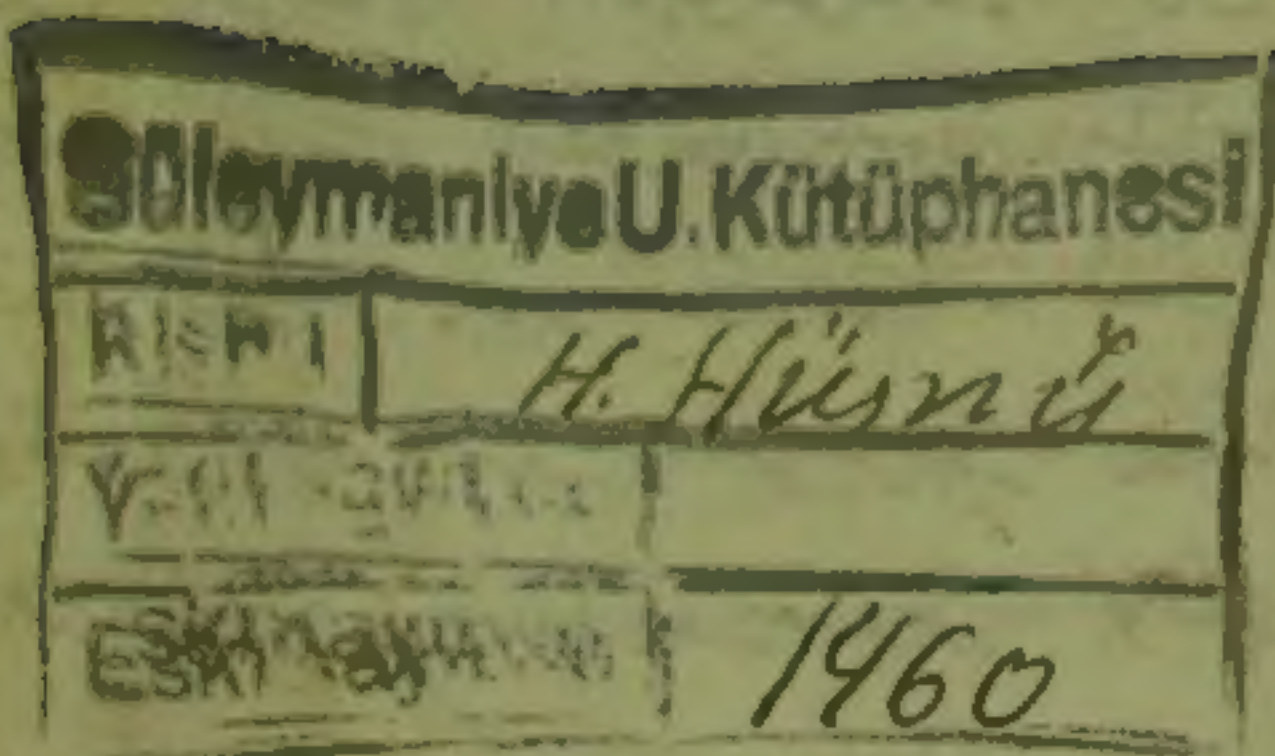 Süleymaniye U. Kütüphanesi
Kısmı H. Hüsnü
Yeni
Eski Kayıt No. 1460